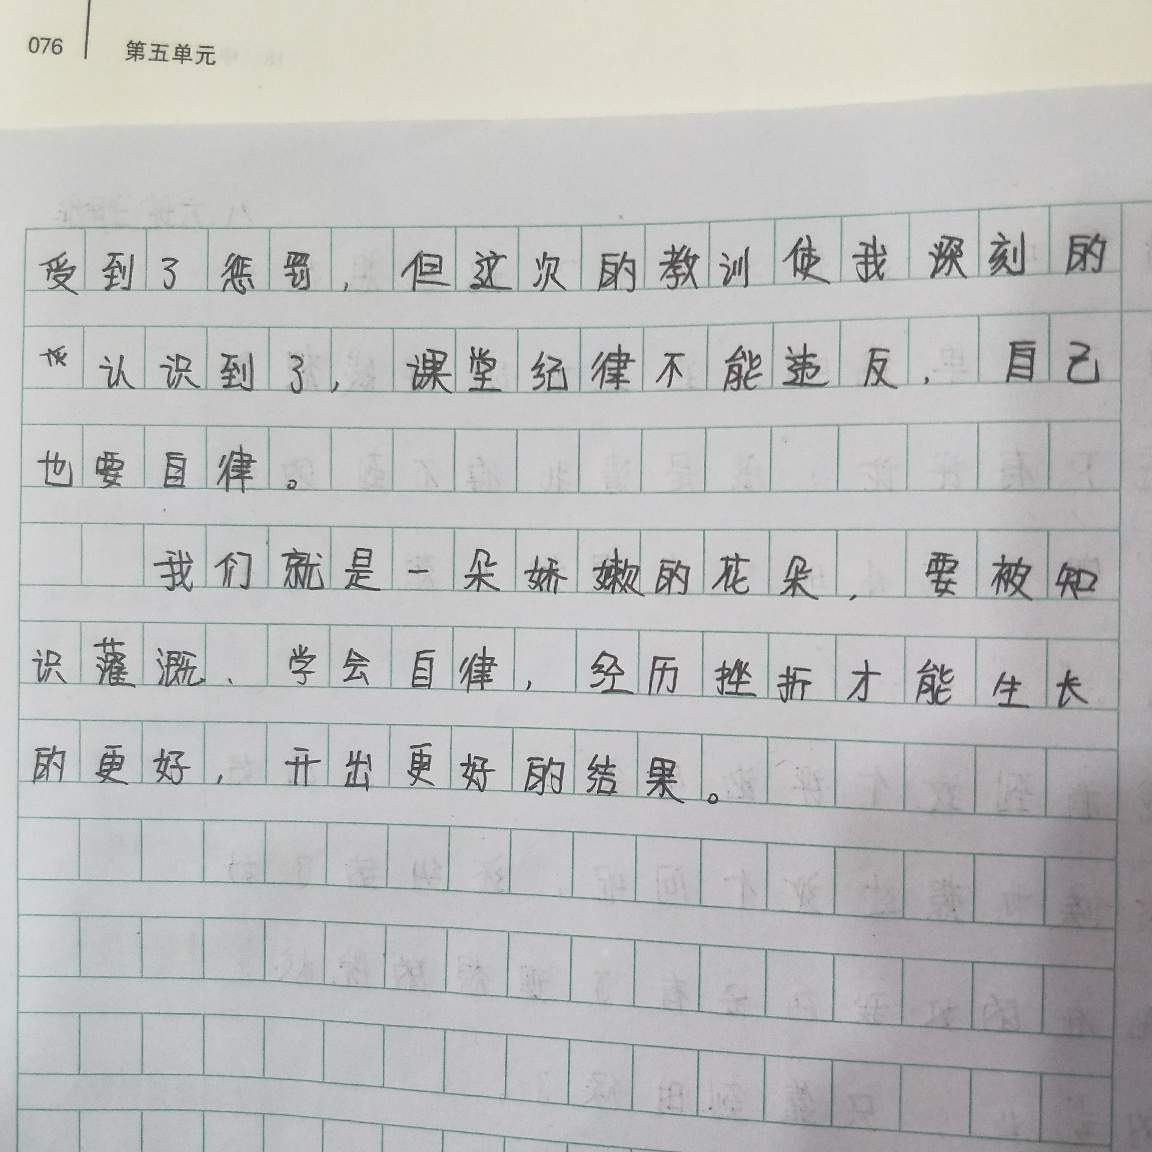 076 第五单元
受到了惩罚，但这次的教训使我深刻的
认识到了，课堂纪律不能违反，自己
也要自律。
我们就是一朵娇嫩的花朵，要被知
识灌溉、学会自律，经历挫折才能生长
的更好，开出更好的结果。